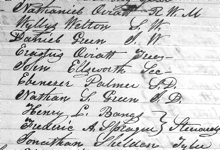 Nathaniel Oviatt R. W. M
Wyllys Welton S. W.
Daniel Green J. W.
Erastus Oviatt Trees.
John Ellsworth Sec
Ebenezer Palmer S. D.
Nathan S. Green J. D.
Henry L. Bangs
Frederic A. Sprague } Stewards
Jonathan Sheldon Tyler